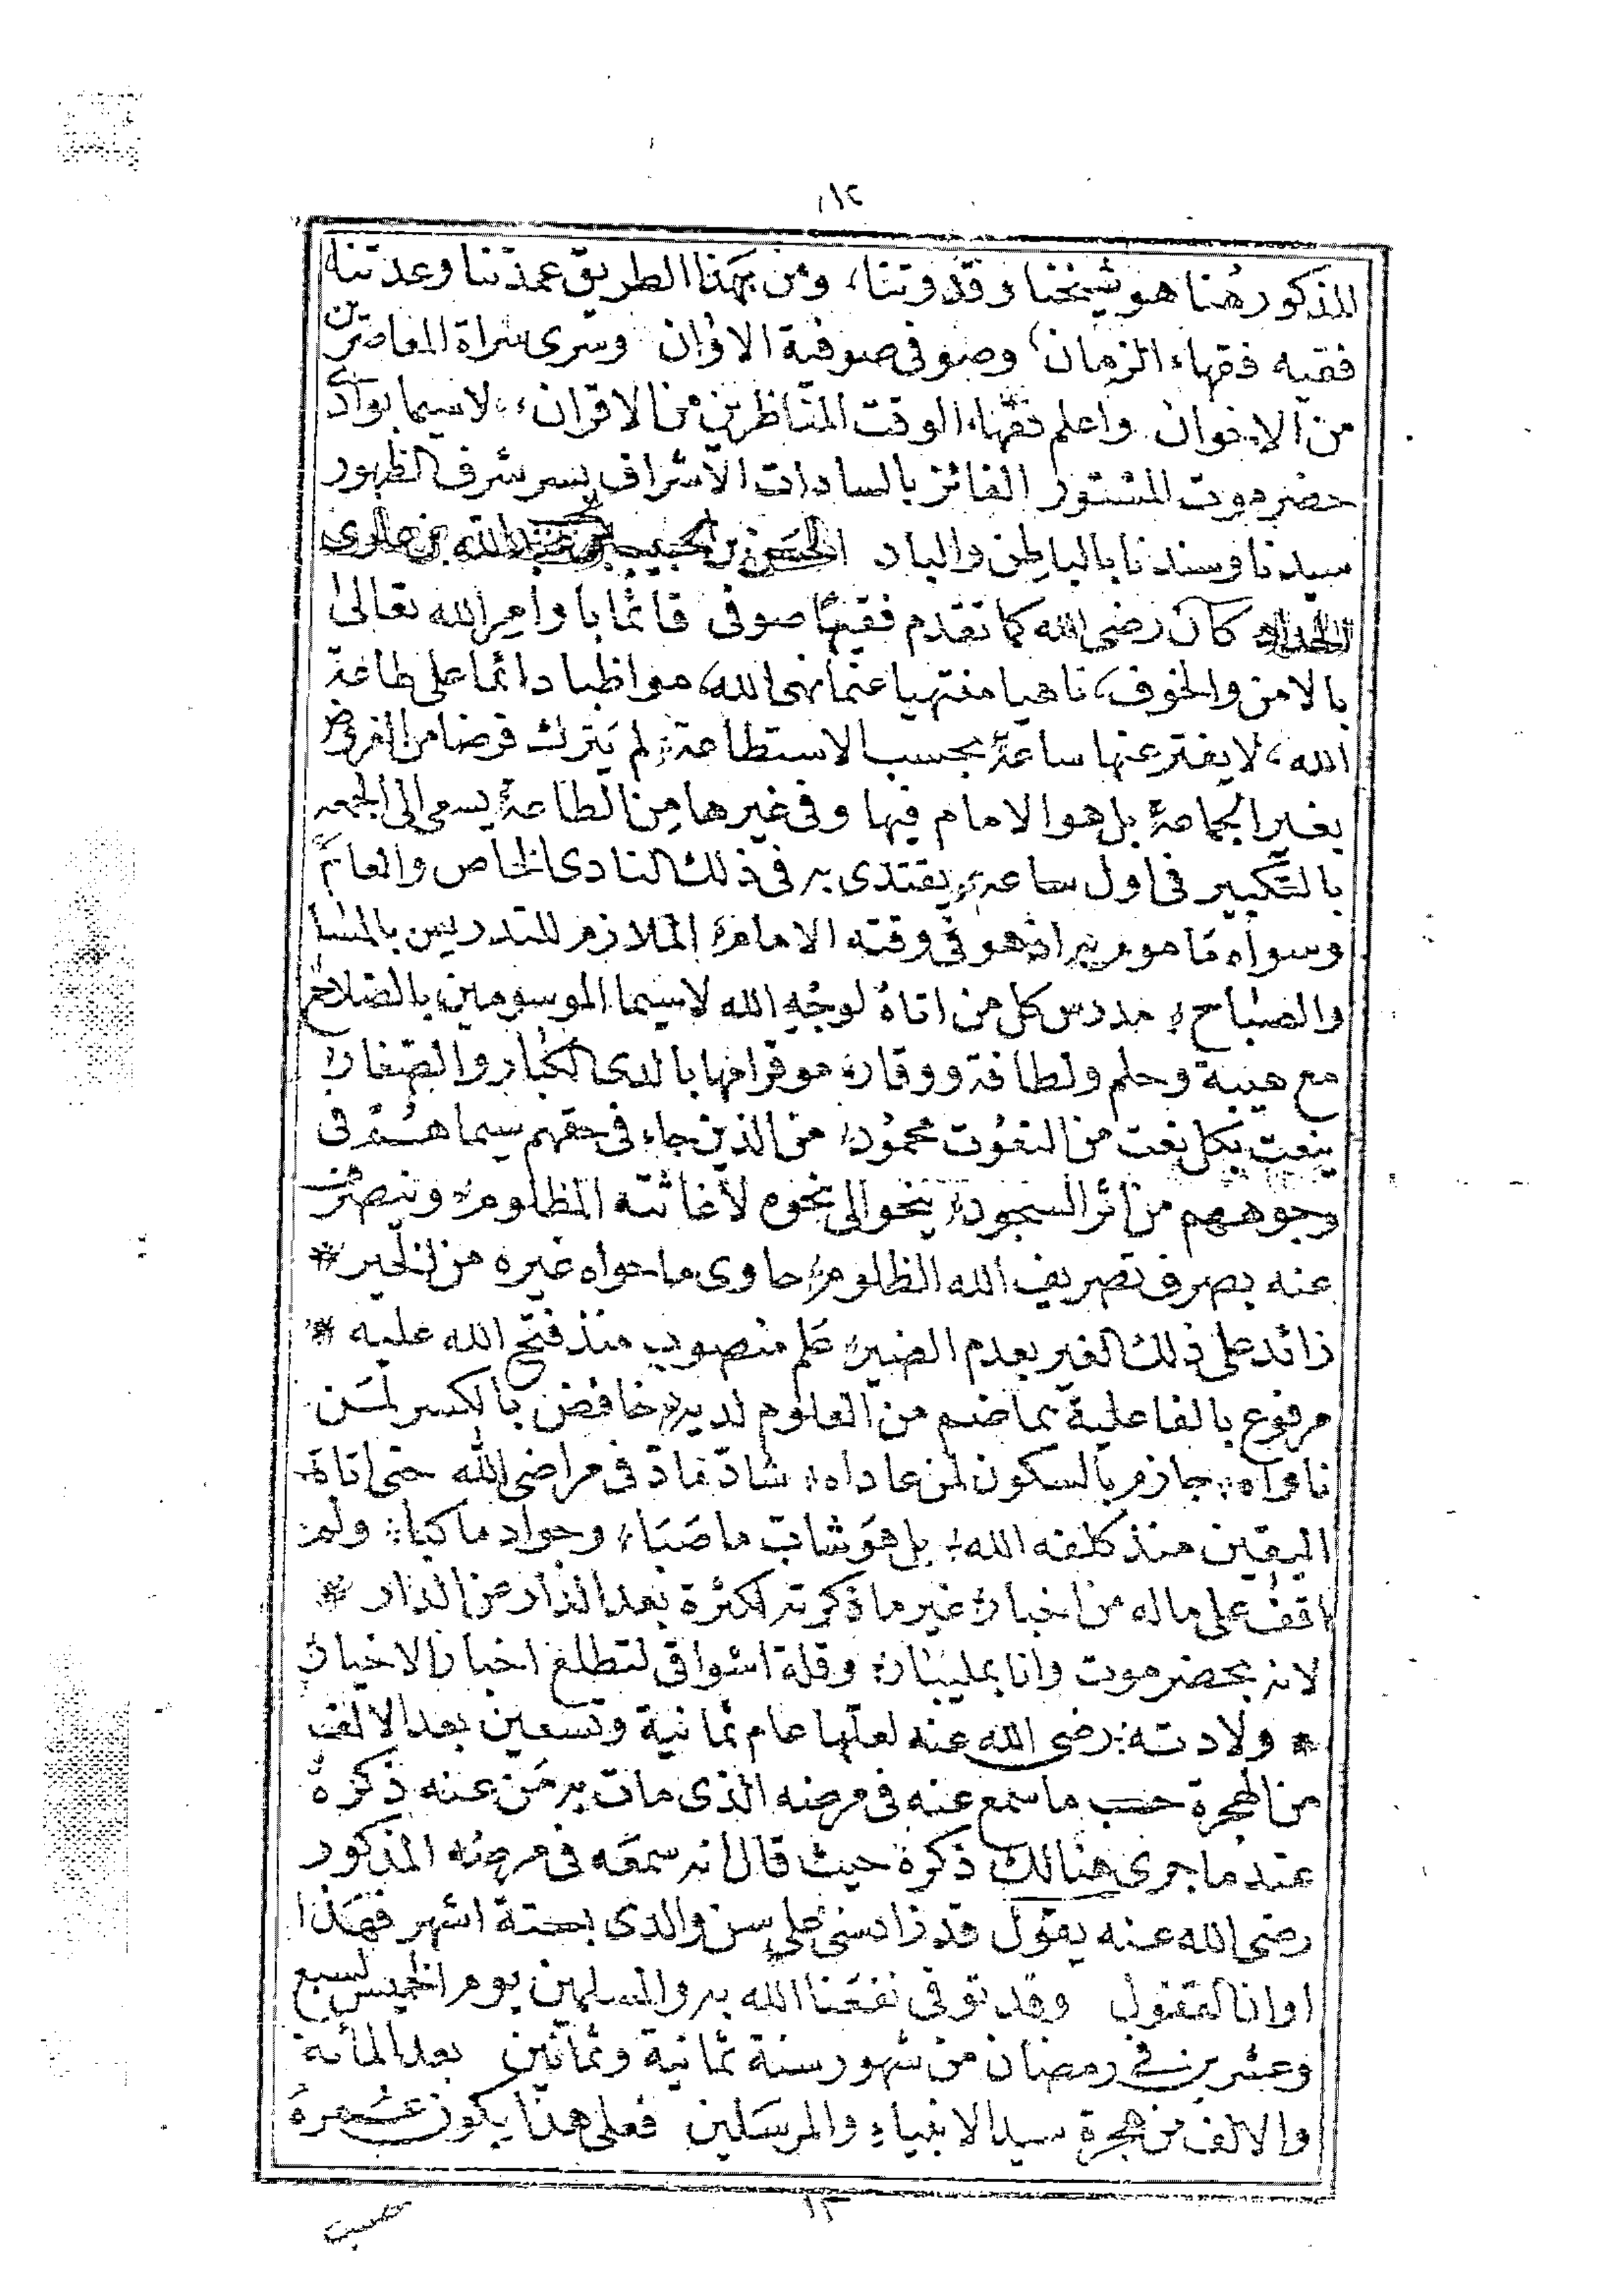 ١٢
المذكور هُنا هو شيخنا وقدوتنا، ومن بهذا الطريق عمدتنا وعدتنا
فقيه فقهاء الزمان، وصوفى صوفية الاوان وسرى سراة المعاصرين
من الاخوان واعلم فقهاء الوقت المناظرين من الاقران، لاسيما بوادى
حضرموت المشتور الفائز بالسادات الاشراف بسر شرف الظهور
سيدنا وسندنا بالباطن والباد الحسن بن الحبيب عبد الله بن علوى
الحداد كان رضى الله كما تقدم فقيها صوفى قائما باوامر الله تعالى
بالامن والخوف، ناهيا منتهيا عما نهى الله، مواظبا دائما على طاعة
الله، لا يفتر عنها ساعة بحسب الاستطاعة، لم يترك فرضا من الفروض
بغير الجماعة بل هو الامام فيها وفى غيرها من الطاعة، يسعى الى الجمعه
بالتبكير فى اول ساعه، يقتدى به فى ذلك النادى الخاص والعام
وسواه ماموم به اذ هو فى وقته الامام، الملازم للتدريس بالمسا
والصباح، مدرس كل من اتاه لوجه الله لاسيما الموسومين بالصلاح
مع هيبة وحلم ولطافة ووقار، موقرا مهابا لدى الكبار والصغار
ينعت بكل نعت من النعوت محمود، من الذين جاء فى حقهم سيما هم فى
وجوههم من اثر السجود، ينحو الى نحوه لاغاثته المظلوم، وينصرف
عنه بصرف تصريف الله الظلوم، حاوى ما حواه غيره من الخير *
زائد على ذلك الغير بعدم الضير، علم منصوب منذ فتح الله عليه *
مرفوع بالفاعلية بما ضم من العلوم لديه، خافض بالكسر لمن
ناواه، جازم بالسكون لمن عاداه، شادّ مادّ فى مراضى الله حتى اتاه
اليقين منذ كلفه الله، بل هو شاب ما صَبَا، وجواد ما كبا، ولم
اقف على ماله من اخبار، غير ما ذكرته لكثرة بعد الدار عن الدار *
لانه بحضرموت وانا بمليبار، وقلة اشواقى لتطلع اخبار الاخيار
* ولادته رضى الله عنه لعلها عام ثمانية وتسعين بعد الالف
من الهجرة حسب ما سمع عنه فى مرضه الذى مات به مَن عنه ذكره
عند ما جرى هنالك ذكره حيث قال انه سمعه فى مرضه المذكور
رضى الله عنه يقول قد زاد سنى على سن والدى بستة اشهر فهذا
اوان المقول وقد توفى نفعنا الله به والمسلمين يوم الخميس لسبع
وعشرين فى رمضان من شهور سنة ثمانية وثمانين بعد المائة
والالف من هجرة سيد الانبياء والمرسلين فعلى هذا يكون عمره
١٣
حسب